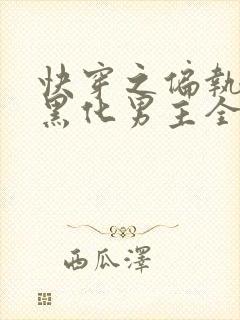 快穿之偏执
黑化男主全
西瓜泽